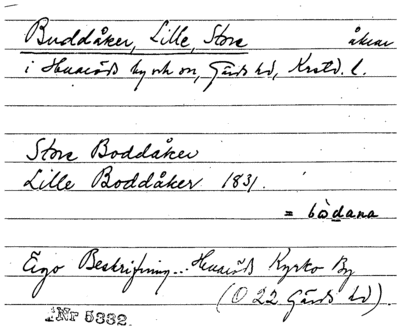 Buddåker, Lille, Stora åkrar
i Huaröds by och sn, Gärds hd, Krstd. l.
Stora Boddåker
Lille Boddåker 1831.
= bòdana
Ego Beskrifning... Huaröds Kyrko By
(O 22 Gärds hd).
Nr 5332